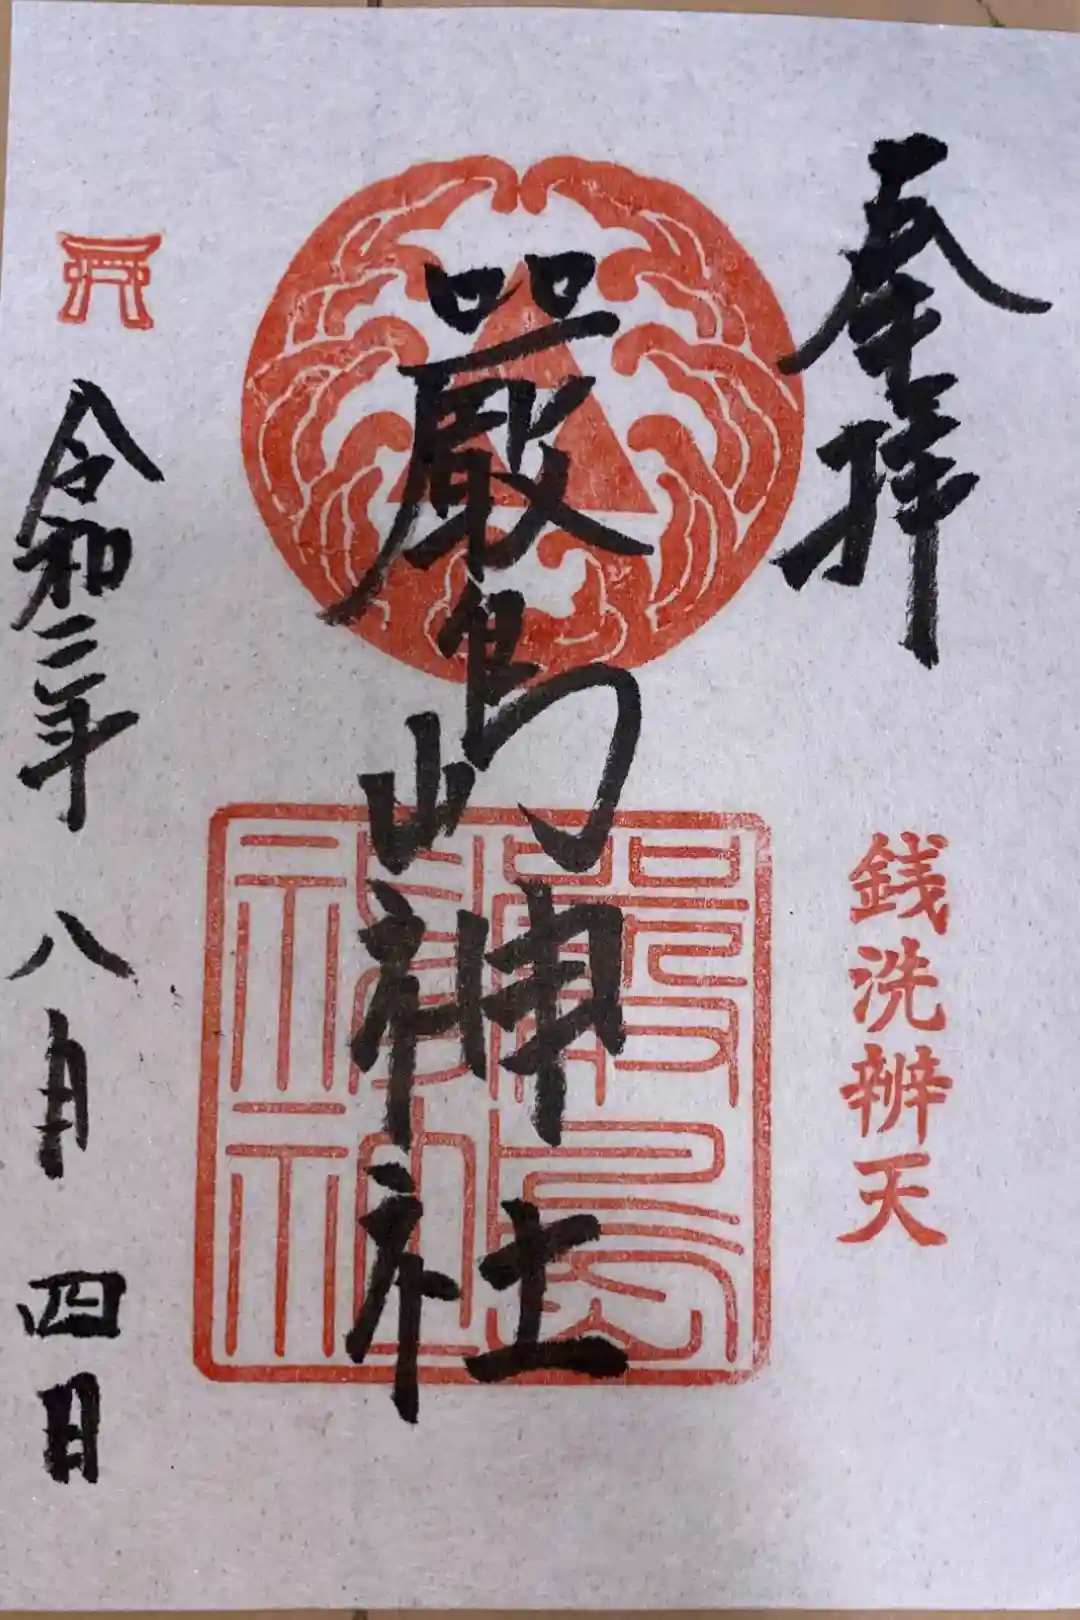 奉拝
銭洗辨天
嚴島神社
嚴島神社
令和二年八月四日